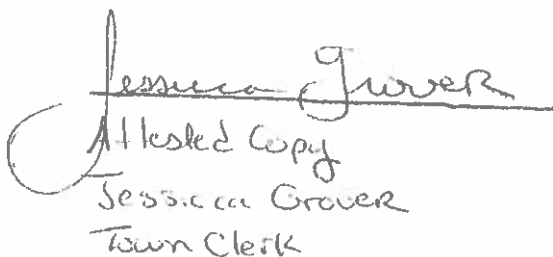 Jessica Grover
Attested Copy
Jessica Grover
Town Clerk